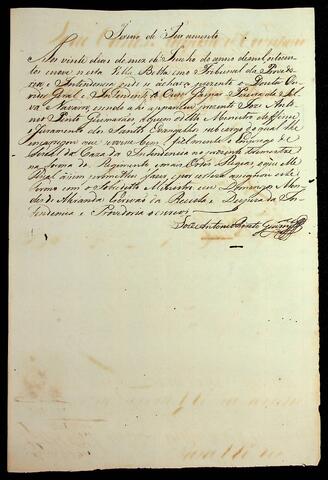 Termo de Juramento
Aos vinte dias do mes de Junho do anno de mil oitocen
tos e nove nesta Villa Bella em o Tribunal da Provedo
ria e Intendencia onde se achava prezente o Doutor Ou
vidor Geral e Intendente do Ouro Gaspar Pereira da Sil
va Navarro, e onde ahi appareceu prezente Joze Anto
nio Pinto Guimarães a quem o dito Ministro deferio
o Juramento dos Santos Evangelhos sob cargo do qual lhe
encarregou que servisse bem e fielmente o Emprego de
da Caza da Intendencia no prezente
na forma do Regimento e mais Ordens Regias, o que
elle assim prometteu fazer, e por estar assignou este
Termo com o Sobredito Ministro eu Domingos
de Miranda Escrivão da Receita e Despeza da In
tendencia e Provedoria o escrevi
Joze Antonio Pinto Guim.es